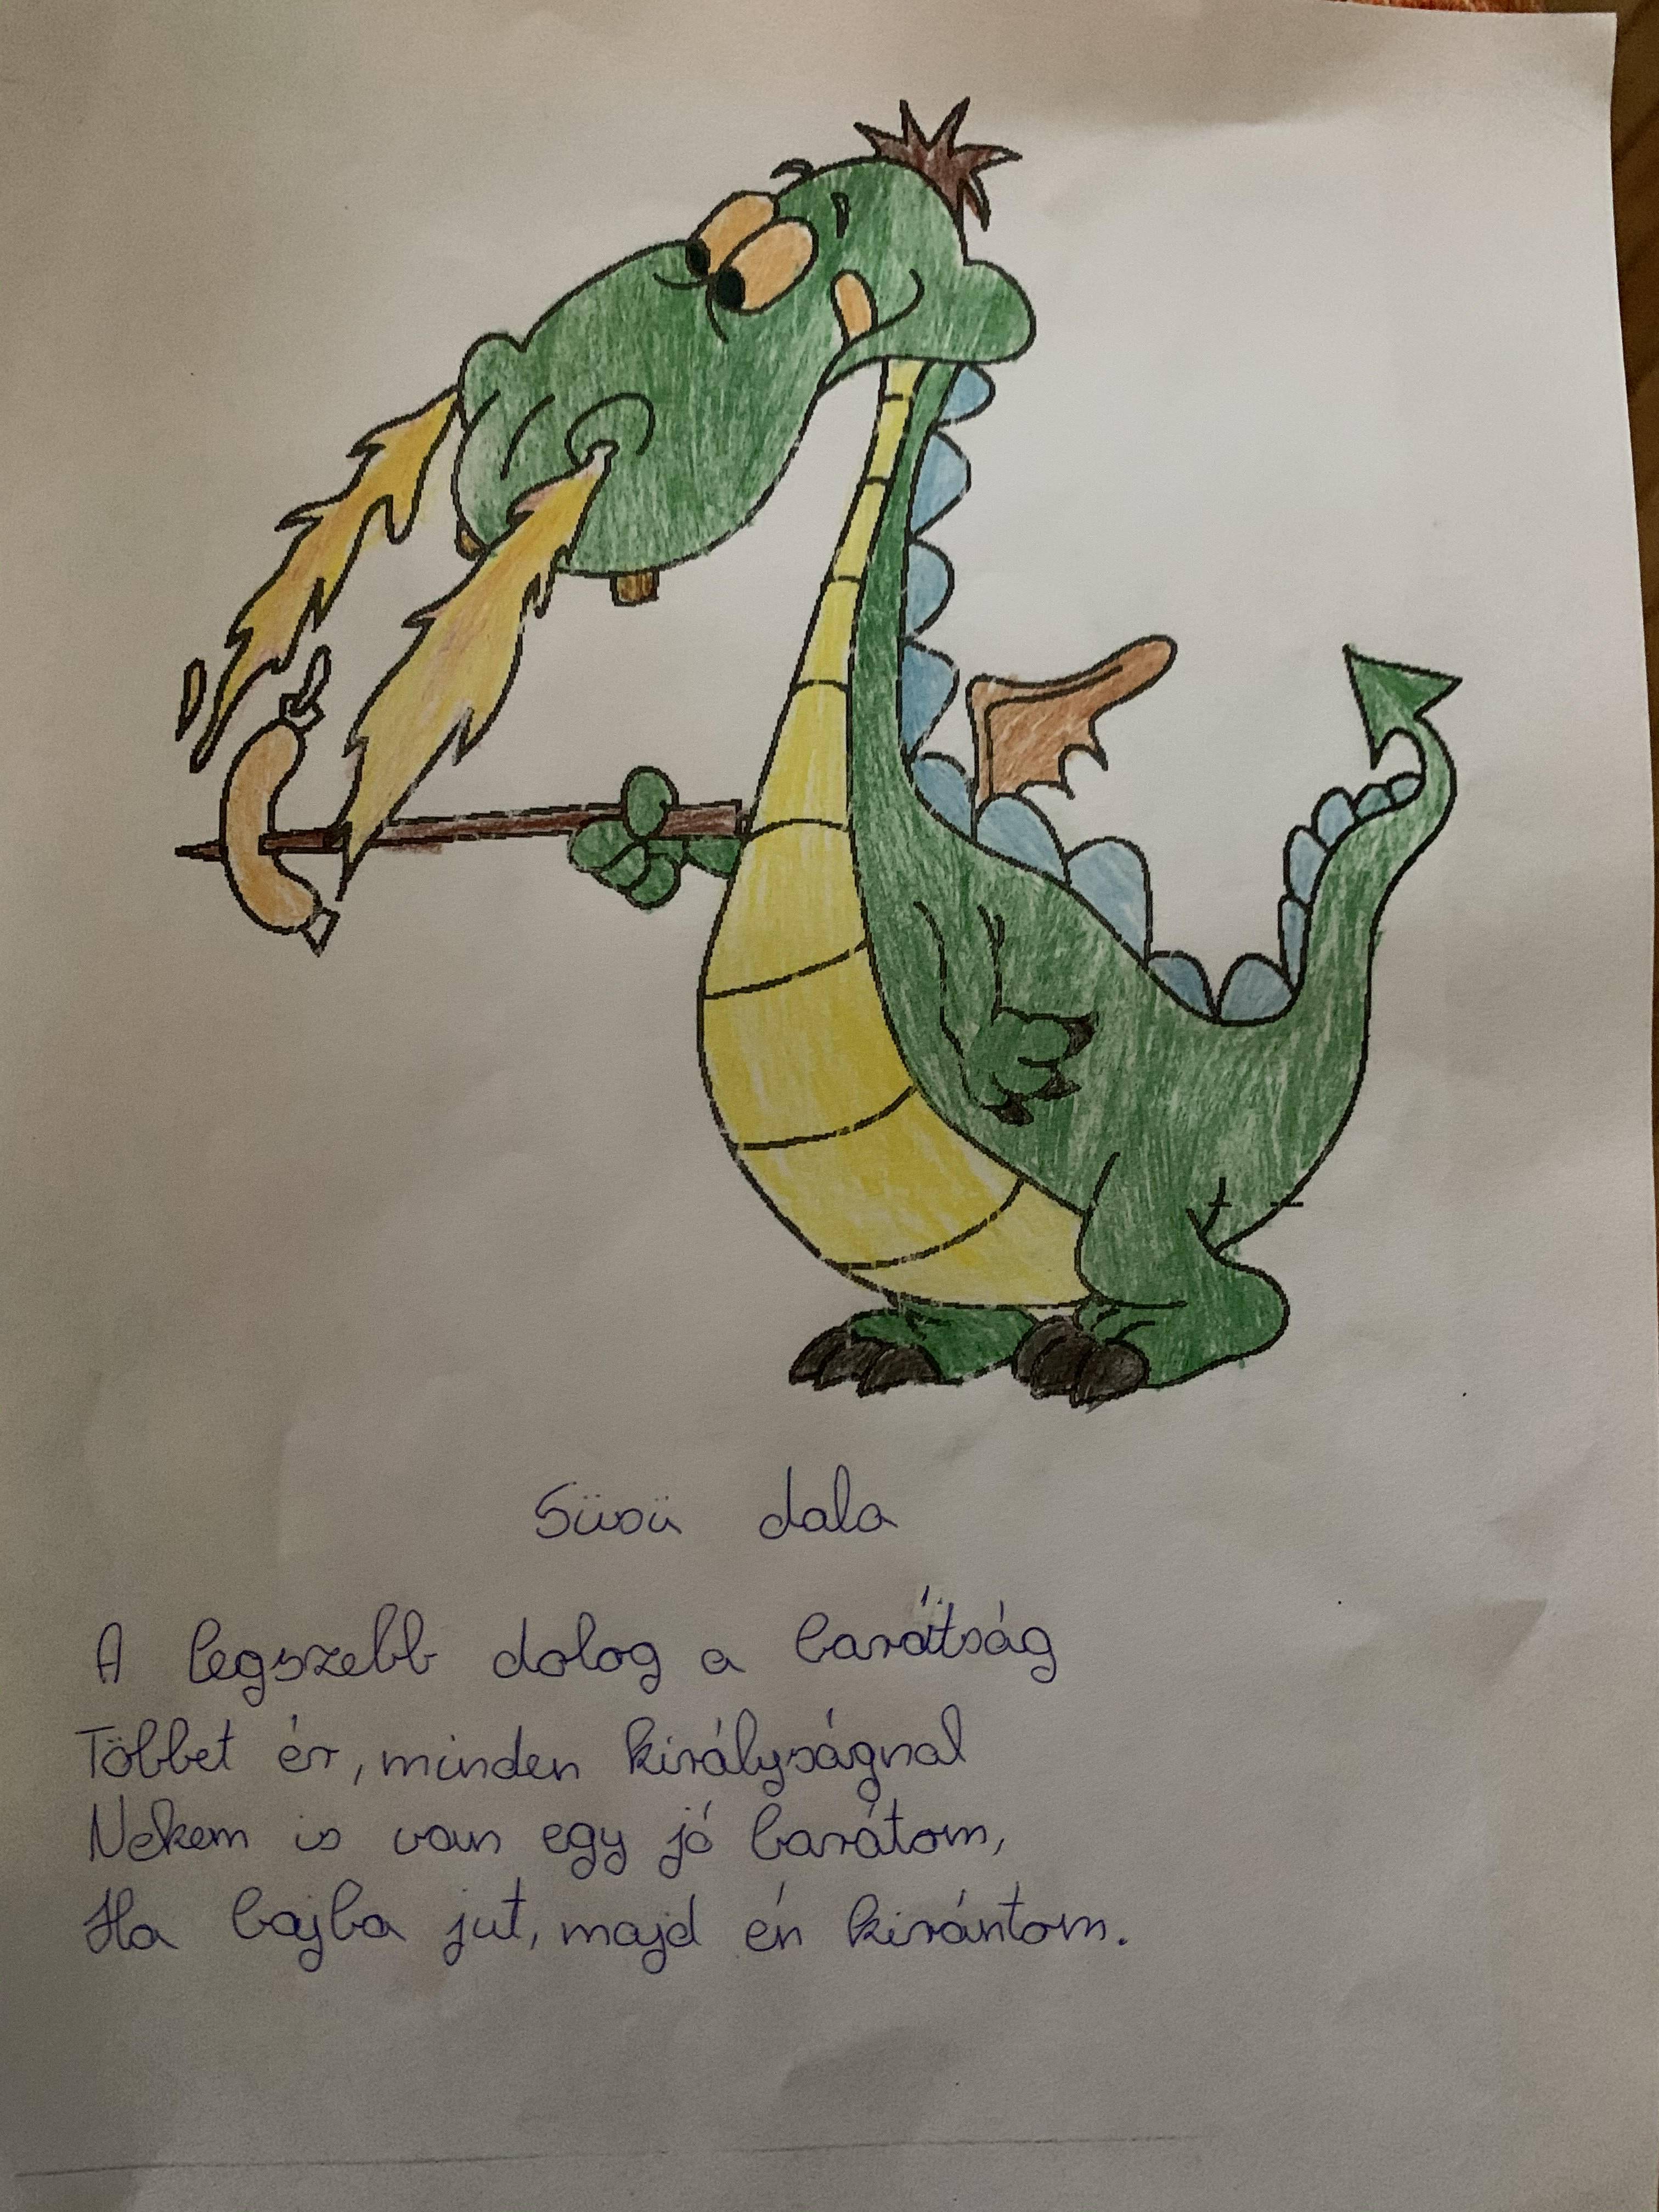 Süsü dala
A legszebb dolog a barátság
Többet ér, minden királyságnal
Nekem is van egy jó barátom,
Ha bajba jut, majd én kirántom.